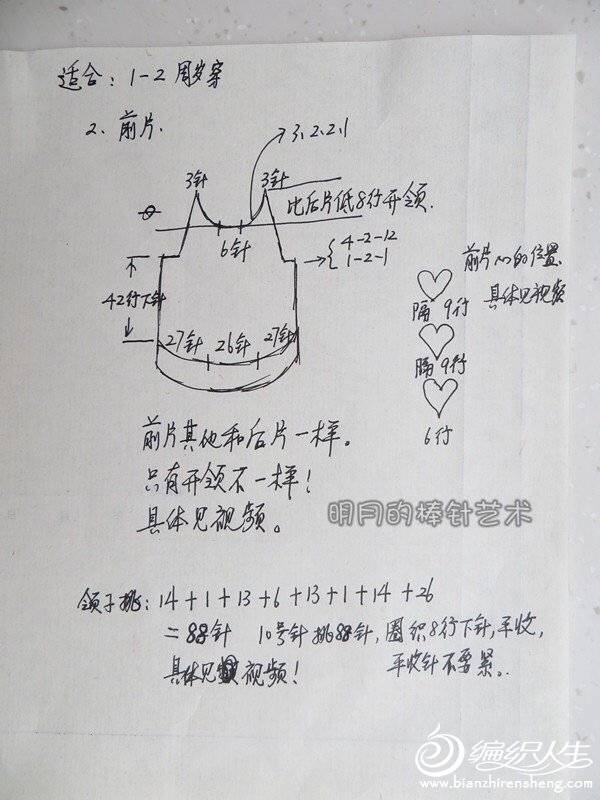 适合：1-2周岁穿
2、前片.
3、2、2、1
3针 3针
比后片低8行开领.
6针
4-2-12
1-2-1
前片心的位置
具体见视频
42行下针
隔9行
27针 26针 27针
隔9行
6行
前片其他和后片一样。
只有开领不一样！
具体见视频。
明月的棒针艺术
领子挑：14+1+13+6+13+1+14+26
=88针 10号针挑88针，圈织8行下针，平收，
具体见视频！ 平收针不要紧。
编织人生
www.bianzhirensheng.com